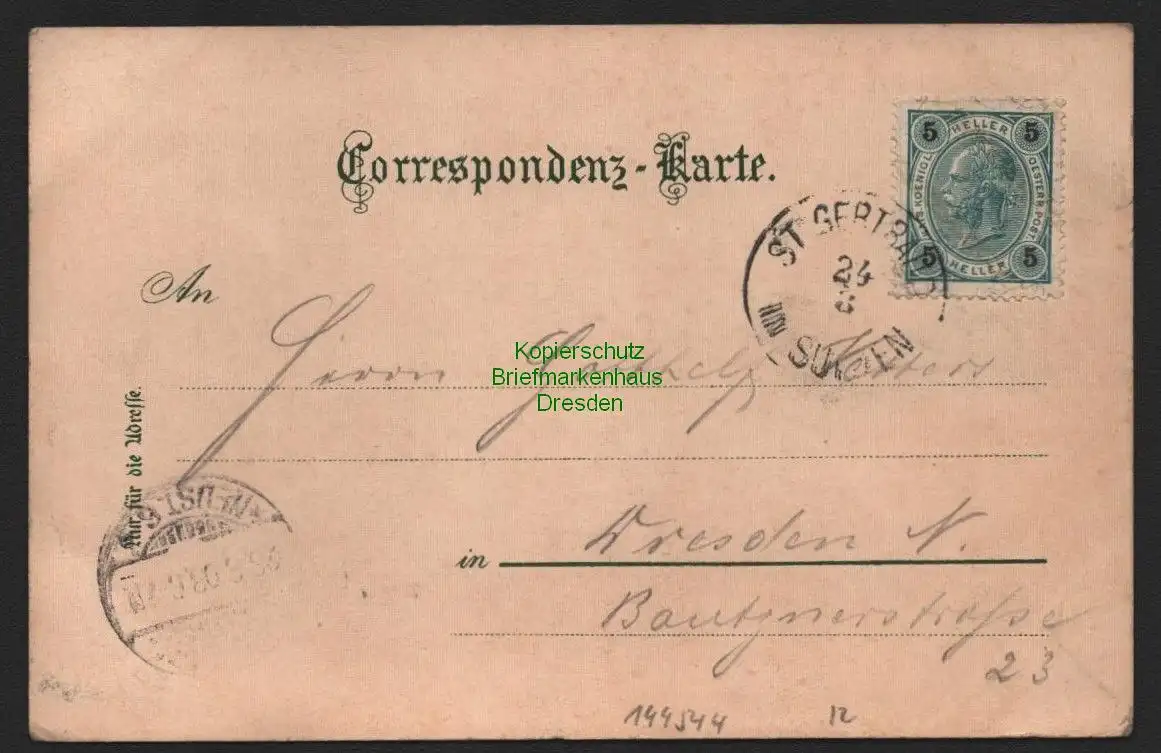 Correspondenz-Karte.
5 HELLER 5
K.K. KOENIGL. OESTERR. POST.
5 HELLER 5
ST GERTRAUD
24
IN SULDEN
An
Herrn Gotthelf
Kopierschutz
Briefmarkenhaus
Dresden
Nur für die Adresse.
in Dresden N.
Bautznerstraße
23
144544 12